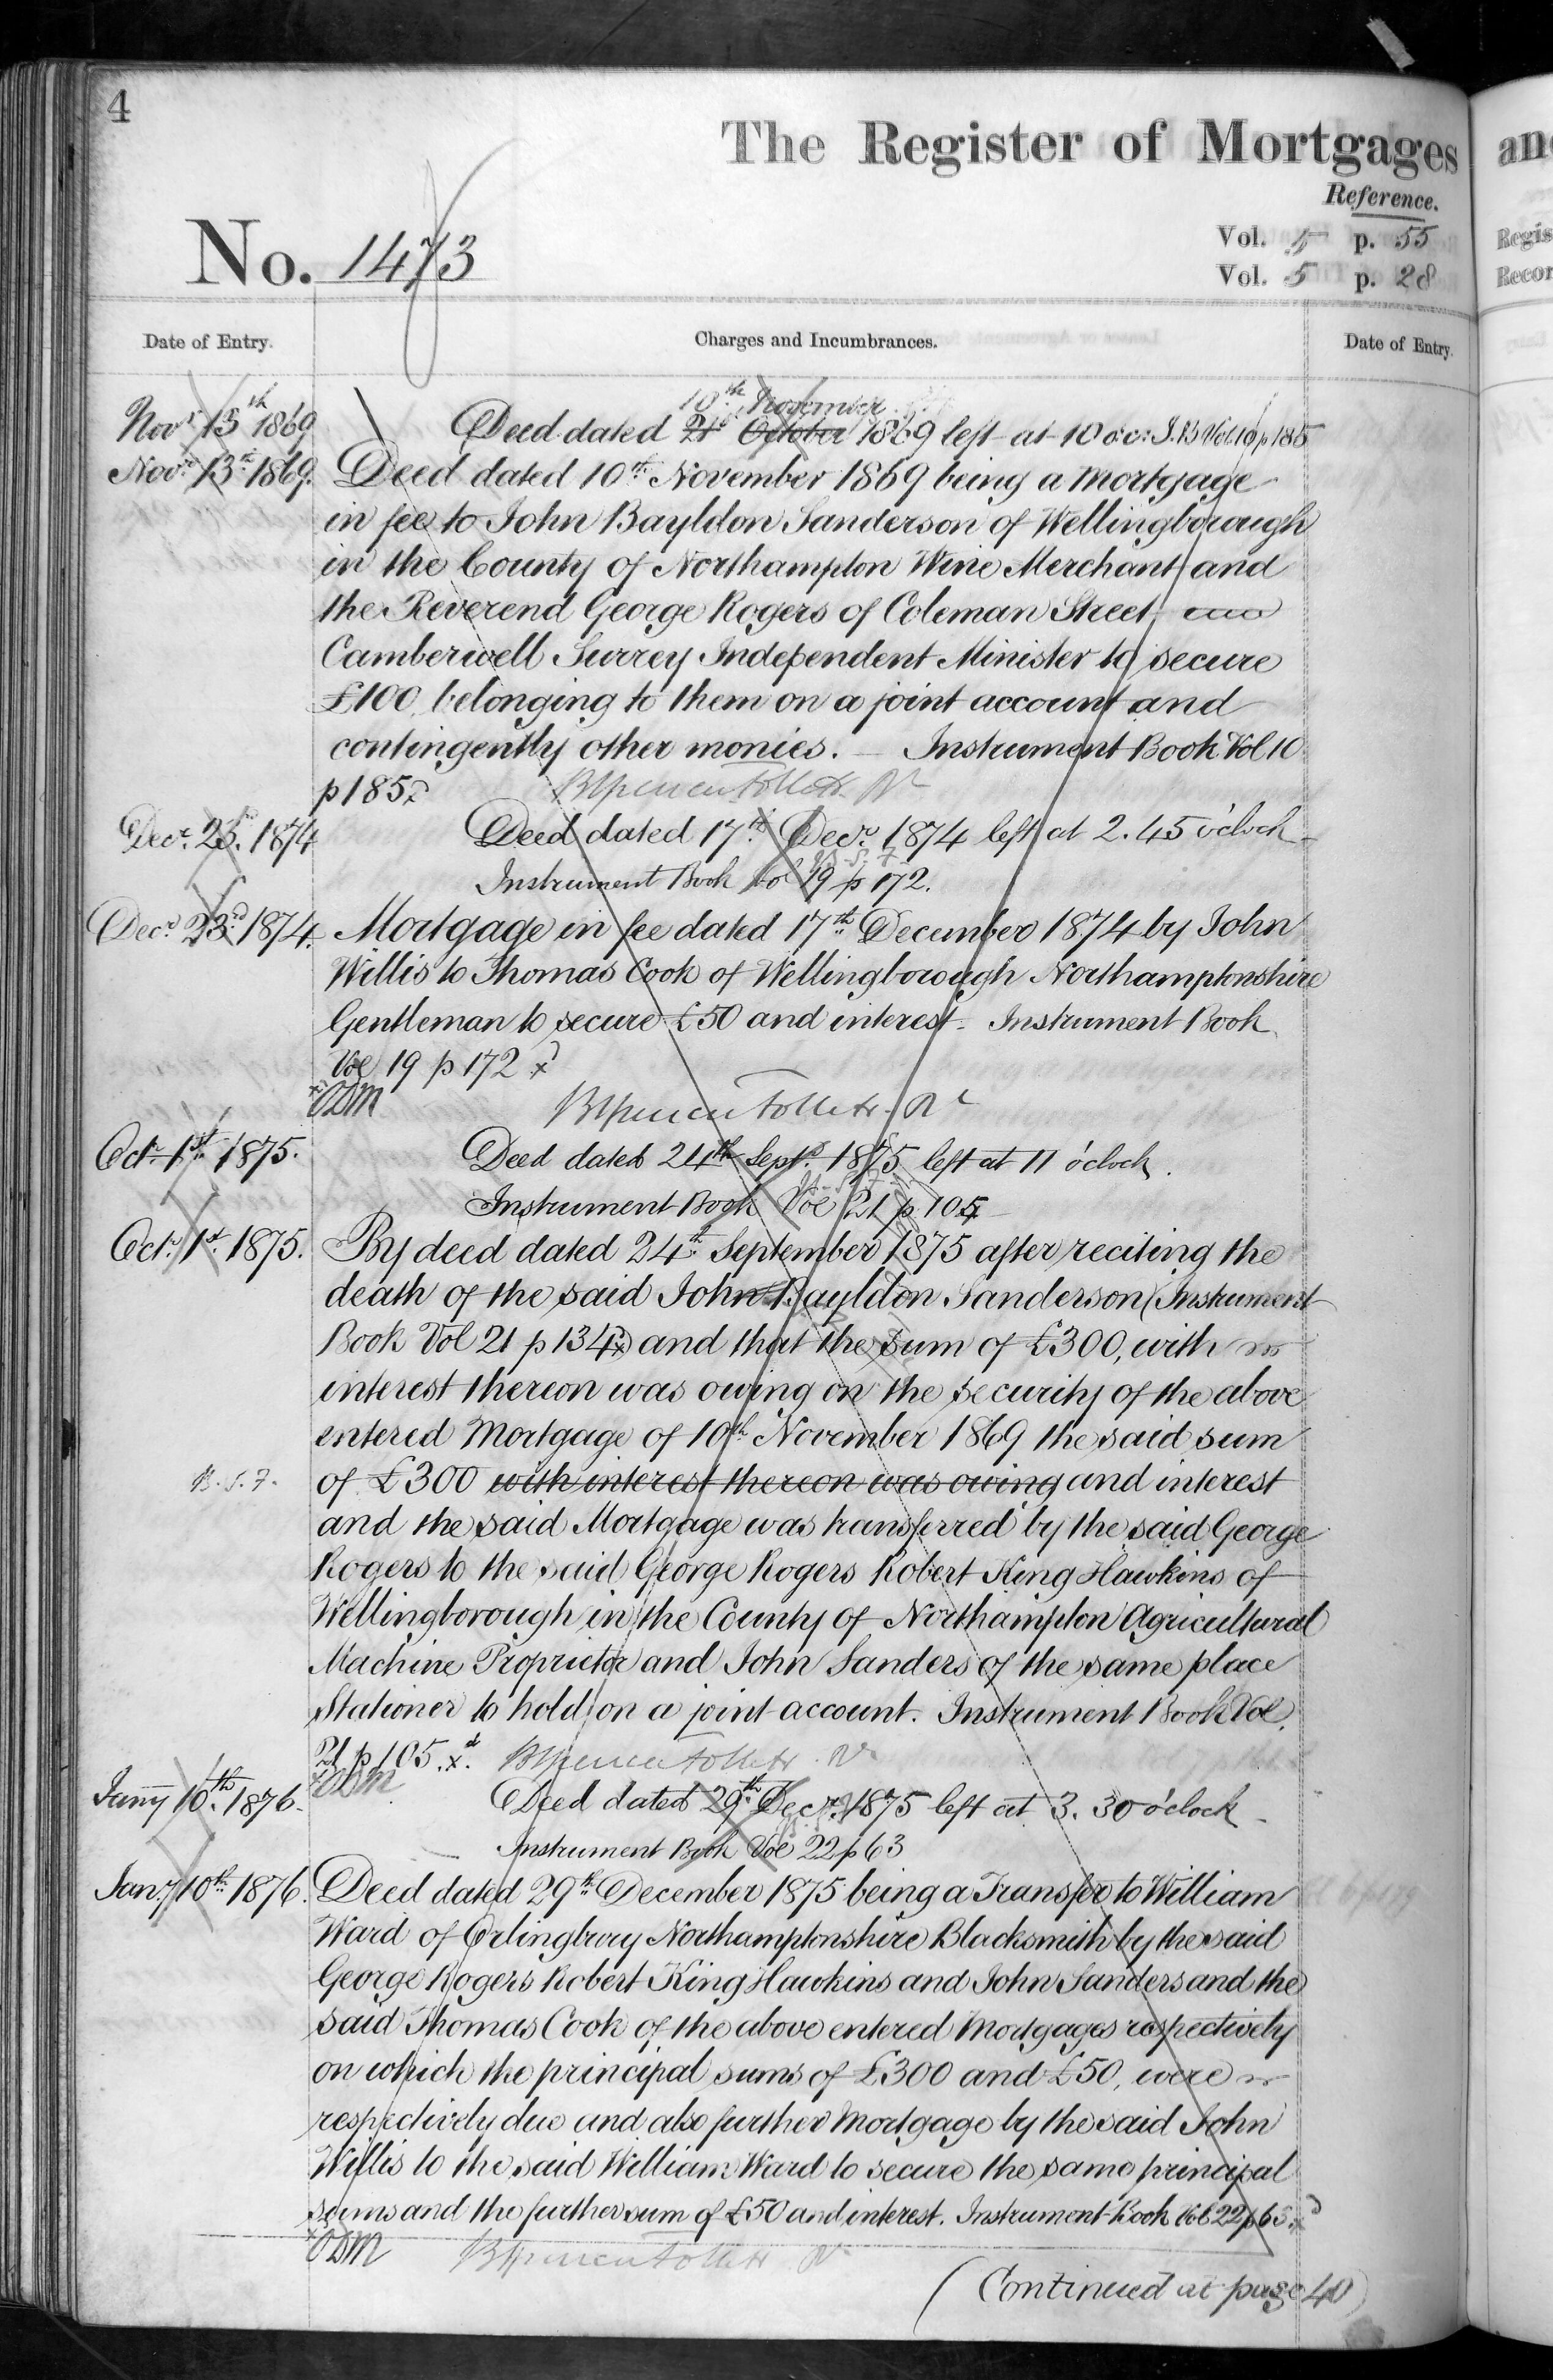 4
The Register of Mortgages
Reference.
No. 1473
Vol. 5 p. 55
Vol. 5 p. 28
Date of Entry.
Charges and Incumbrances.
Date of Entry.
10th November
Novr 13th 1869 Deed dated 21st October 1869 left at 10 oc: I.B Vol.10 p 185
Novr 13th 1869. Deed dated 10th November 1869 being a Mortgage
in fee to John Bayldon Sanderson of Wellingborough
in the County of Northampton Wine Merchant and
the Reverend George Rogers of Coleman Street
Camberwell Surrey Independent Minister to secure
£100 belonging to them on a joint account and
contingently other monies. — Instrument Book Vol 10
p 185
Decr 23d 1874 Deed dated 17th Decr 1874 left at 2.45 o'clock
Instrument Book Vol 19 p 172.
Decr 23d 1874. Mortgage in fee dated 17th December 1874 by John
Willis to Thomas Cook of Wellingborough Northamptonshire
Gentleman to secure £50 and interest. Instrument Book
Vol 19 p 172 x
x ODM
Octr 1st 1875. Deed dated 24th Septr 1875 left at 11 o'clock.
Instrument Book Vol 21 p 105
Octr 1st 1875. By deed dated 24th September 1875 after reciting the
death of the said John Bayldon Sanderson (Instrument
Book Vol 21 p 134x) and that the sum of £300, with
interest thereon was owing on the security of the above
entered Mortgage of 10th November 1869 the said sum
B.S.F. of £300 with interest thereon was owing and interest
and the said Mortgage was transferred by the said George
Rogers to the said George Rogers Robert King Hawkins of
Wellingborough in the County of Northampton Agricultural
Machine Proprietor and John Sanders of the same place
Stationer to hold on a joint account. Instrument Book Vol.
21 p 105. x
x ODM
Jany 10th 1876. Deed dated 29th Decr 1875 left at 3.30 o'clock
Instrument Book Vol 22 p 63
Jany 10th 1876. Deed dated 29th December 1875 being a Transfer to William
Ward of Orlingbury Northamptonshire Blacksmith by the said
George Rogers Robert King Hawkins and John Sanders and the
said Thomas Cook of the above entered Mortgages respectively
on which the principal sums of £300 and £50, were
respectively due and also further Mortgage by the said John
Willis to the said William Ward to secure the same principal
sums and the further sum of £50 and interest. Instrument Book Vol 22 p 63. x
x ODM
(Continued at page 40)
an
Regis
Recor